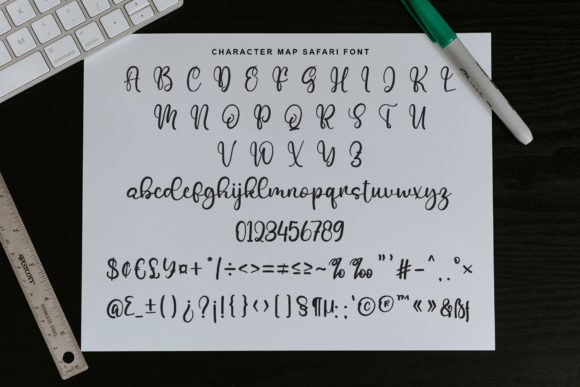 CHARACTER MAP SAFARI FONT
A B C D E F G H I J K L
M N O P Q R S T U
V W X Y Z
abcdefghijklmnopqrstuvwxyz
0123456789
$¢€£¥¤+*/÷<>=≠≤≥~%‰"'#-^.,°×
@Σ_±()¿?¡!{}‹›[]§¶µ:;'©®™«»&ßƒ